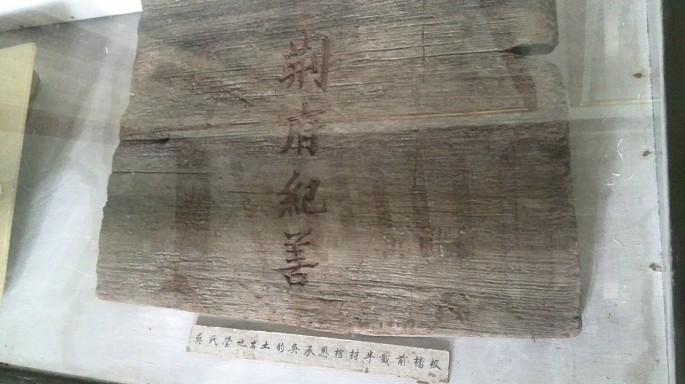 荆府紀善
吳氏茔地出土的吳承恩棺材半截前檔板